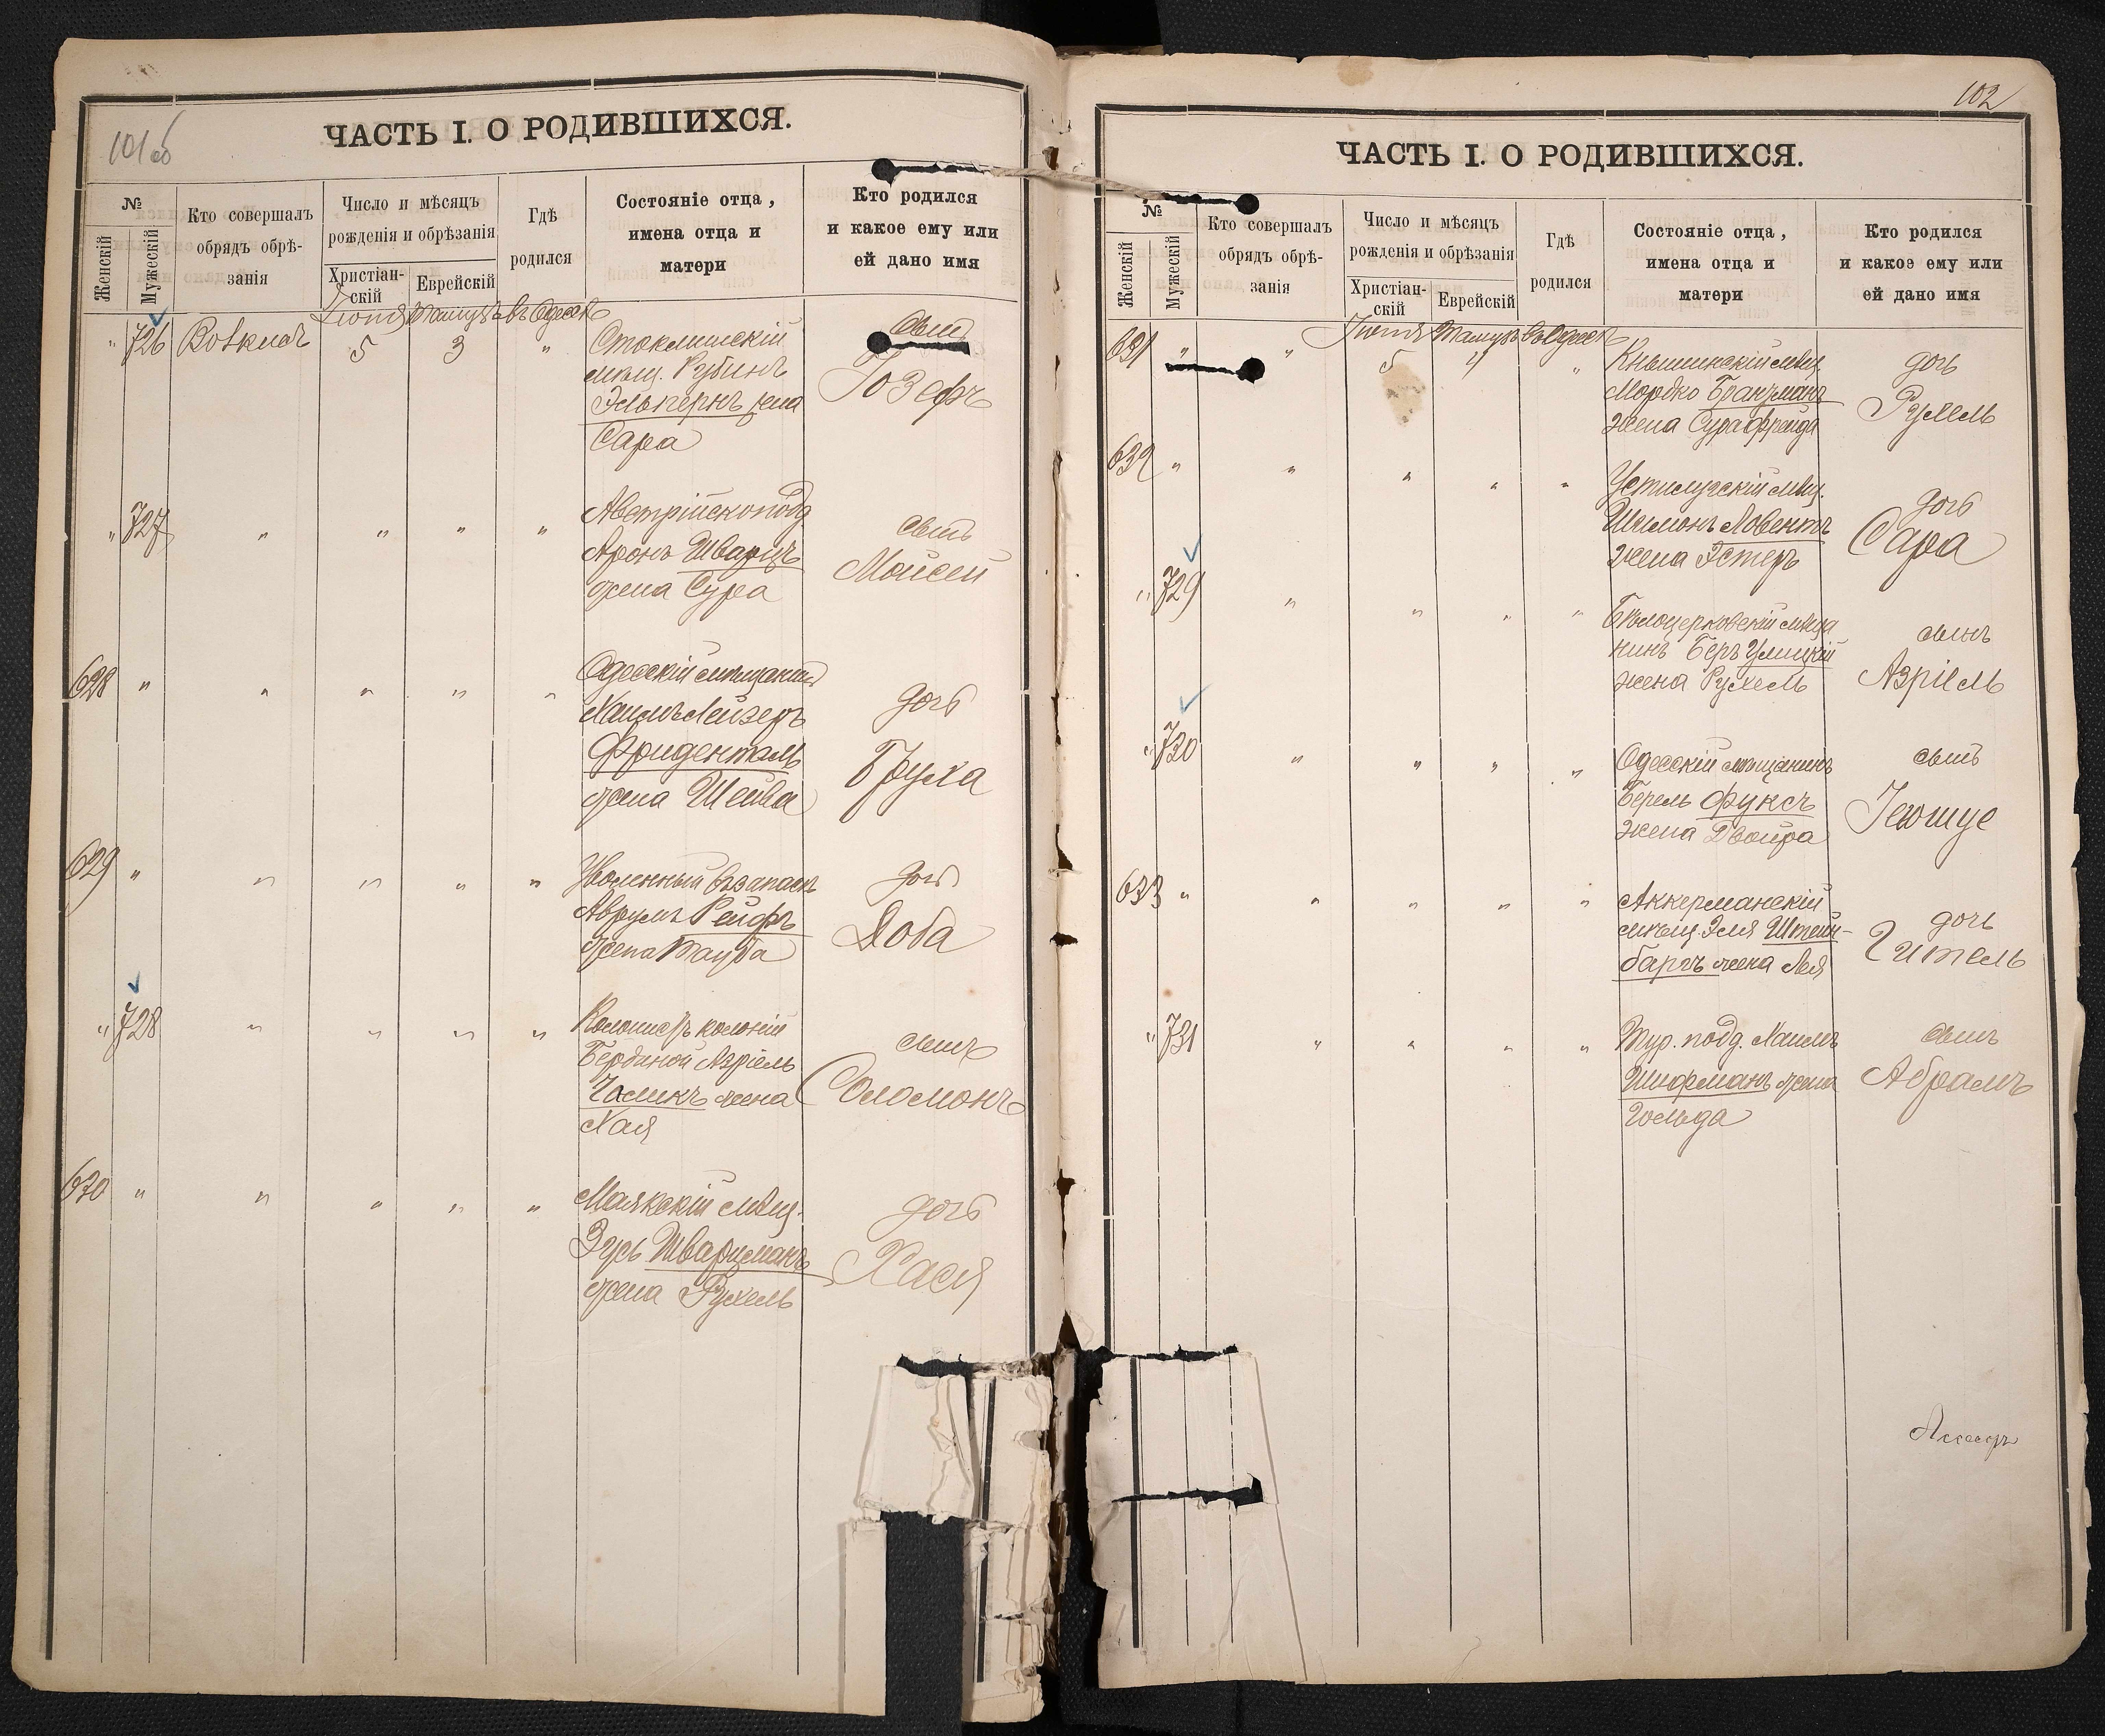 101об
ЧАСТЬ I. О РОДИВШИХСЯ.
№
Женскій
Мужескій
Кто совершалъ
обрядъ обрѣ-
занія
Число и мѣсяцъ
рожденія и обрѣзанія
Христіан-
скій
Еврейскій
Гдѣ
родился
Состояніе отца,
имена отца и
матери
Кто родился
и какое ему или
ей дано имя
Іюня Тамузъ въ Одессѣ
" 726 5 3 "
мѣщ. Рубинъ
Эльпернъ жена
Сара
сынъ
Іозефъ
" 727 " " " "
Австрійскоподд.
Аронъ Шварцъ
жена Сура
сынъ
Мойсей
628 " " " " "
Одесскій мѣщанинъ
Хаимъ Лейзеръ
Фриденталь
жена Шейва
дочь
Бруха
629 " " " " "
Уволенный въ запасъ
Аврумъ Рейфъ
жена Тауба
дочь
Доба
" 728 " " " "
Колонистъ колоніи
Азріель
жена
Хая
сынъ
Соломонъ
630 " " " " "
Маякскій мѣщ.
Зусь Шварцманъ
жена Рухель
дочь
Хася
102
ЧАСТЬ I. О РОДИВШИХСЯ.
№
Женскій
Мужескій
Кто совершалъ
обрядъ обрѣ-
занія
Число и мѣсяцъ
рожденія и обрѣзанія
Христіан-
скій
Еврейскій
Гдѣ
родился
Состояніе отца,
имена отца и
матери
Кто родился
и какое ему или
ей дано имя
Іюня Тамузъ въ Одессѣ
631 " " 5 4 "
Кнышинскій мѣщ.
Мордко Бранзманъ
жена Сура Фрейда
дочь
Рухель
632 " " " " "
Устилугскій мѣщ.
Шимонъ
жена Эстеръ
дочь
Сара
" 729 " " " "
Бѣлоцерковскій мѣща
нинъ Беръ Улицкій
жена Рухель
сынъ
Азріель
" 730 " " " "
Одесскій мѣщанинъ
Берель Фуксъ
жена Двойра
сынъ
Іешуе
633 " " " " "
Аккерманскій
мѣщ. Эля Штейн-
баргъ жена Лея
дочь
Гитель
" 731 " " " "
Тур. подд. Хаимъ
Шифманъ жена
Гольда
сынъ
Абрамъ